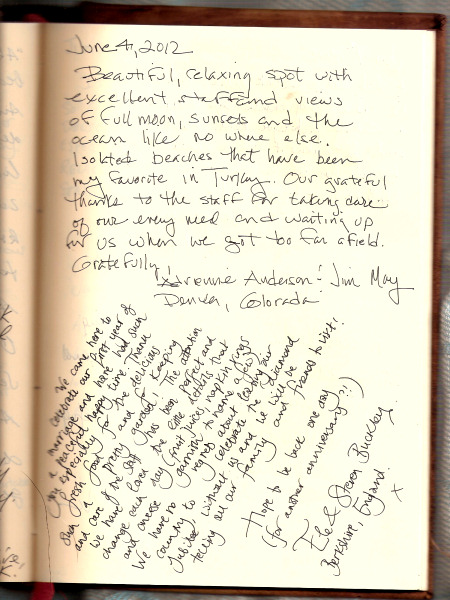 June 4, 2012
Beautiful, relaxing spot with
excellent staff and views
of full moon, sunsets and the
ocean like no where else.
Isolated beaches that have been
my favorite in Turkey. Our grateful
thanks to the staff for taking care
of our every need and waiting up
for us when we got too far afield.
Gratefully,
Adrienne Anderson & Jim May
Denver, Colorado
We came here to
celebrate our first year of
marriage and have had such
a peaceful happy time. Thank
you especially for the delicious
fresh food and for keeping
such a pretty garden! The attention
and care of the staff has been perfect and
we have loved the little details that
change each day (fruit juices, napkin rings
and cheese garnish to name a few).
We have no regrets about leaving our
country to celebrate the diamond
jubilee without us and we will be
telling all our family and friends to visit!
Hope to be back one day
(for another anniversary?!)
& Steven Buckley
Berkshire, England.
x